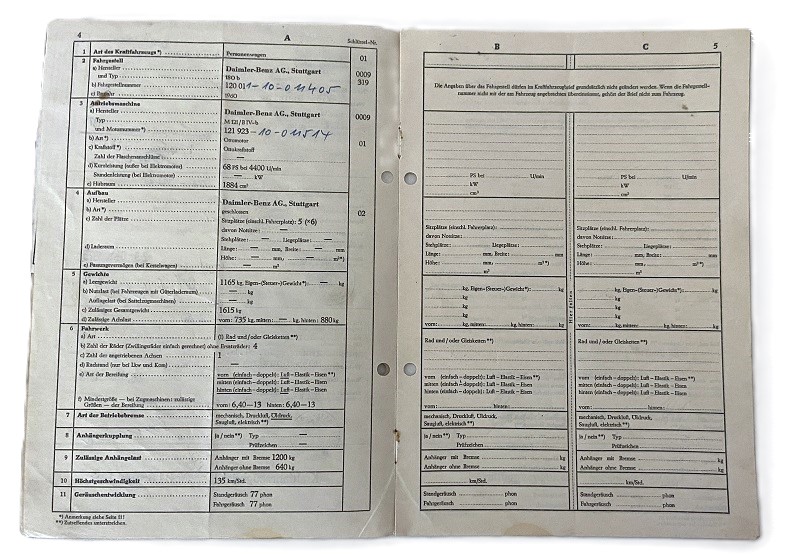 4
A
Schlüssel-Nr.
1 Art des Kraftfahrzeugs*) Personenwagen 01
2 Fahrgestell
a) Hersteller Daimler-Benz AG., Stuttgart 0009
und Typ 180 b 319
b) Fahrgestellnummer 120 011-10-011405
c) Baujahr 1960
3 Antriebsmaschine
a) Hersteller Daimler-Benz AG., Stuttgart 0009
Typ M 121/B IV-b
und Motornummer*) 121 923-10-011514
b) Art*) Ottomotor 01
c) Kraftstoff*) Ottokraftstoff
Zahl der Flaschenanschlüsse —
d) Kurzleistung (außer bei Elektromotor) 68 PS bei 4400 U/min
Stundenleistung (bei Elektromotor) — kW
e) Hubraum 1884 cm³
4 Aufbau
a) Hersteller Daimler-Benz AG., Stuttgart
b) Art*) geschlossen 02
c) Zahl der Plätze Sitzplätze (einschl. Fahrerplatz): 5 (*6)
davon Notsitze: —
Stehplätze: — Liegeplätze: —
d) Laderaum Länge: — mm, Breite: — mm
Höhe: — mm — m²*)
e) Fassungsvermögen (bei Kesselwagen) — m³
5 Gewichte
a) Leergewicht 1165 kg, Eigen-(Steuer-)Gewicht*): — kg
b) Nutzlast (bei Fahrzeugen mit Güterladeraum) — kg
Aufliegelast (bei Sattelzugmaschinen) — kg
c) Zulässiges Gesamtgewicht 1615 kg
d) Zulässige Achslast vorn: 735 kg, mitten: — kg, hinten: 880 kg
6 Fahrwerk
a) Art (1) Rad und/oder Gleisketten**)
b) Zahl der Räder (Zwillingsräder einfach gerechnet) ohne Ersatzräder: 4
c) Zahl der angetriebenen Achsen 1
d) Radstand (nur bei Lkw und Kom) —
e) Art der Bereifung vorn (einfach – doppelt): Luft – Elastik – Eisen**)
mitten (einfach – doppelt): Luft – Elastik – Eisen
hinten (einfach – doppelt): Luft – Elastik – Eisen
f) Mindestgröße — bei Zugmaschinen: zulässige
Größen — der Bereifung vorn: 6,40—13 hinten: 6,40—13
7 Art der Betriebsbremse mechanisch, Druckluft, Öldruck,
Saugluft, elektrisch**)
8 Anhängerkupplung ja/nein**) Typ —
Prüfzeichen —
9 Zulässige Anhängelast Anhänger mit Bremse 1200 kg
Anhänger ohne Bremse 640 kg
10 Höchstgeschwindigkeit 135 km/Std.
11 Geräuschentwicklung Standgeräusch 77 phon
Fahrgeräusch 77 phon
*) Anmerkung siehe Seite III!
**) Zutreffendes unterstreichen.
B
C
5
Die Angaben über das Fahrgestell dürfen im Kraftfahrzeugbrief grundsätzlich nicht geändert werden. Wenn die Fahrgestell-
nummer nicht mit der am Fahrzeug angebrachten übereinstimmt, gehört der Brief nicht zum Fahrzeug.
PS bei U/min
kW
cm³
Sitzplätze (einschl. Fahrerplatz):
davon Notsitze:
Stehplätze: Liegeplätze:
Länge: mm, Breite: mm
Höhe: mm m²*)
m³
kg, Eigen-(Steuer-)Gewicht*): kg
kg
kg
kg
vorn: kg, mitten: kg, hinten: kg
Rad und/oder Gleisketten**)
vorn (einfach – doppelt): Luft – Elastik – Eisen**)
mitten (einfach – doppelt): Luft – Elastik – Eisen
hinten (einfach – doppelt): Luft – Elastik – Eisen
vorn: hinten:
mechanisch, Druckluft, Öldruck,
Saugluft, elektrisch**)
ja/nein**) Typ
Prüfzeichen
Anhänger mit Bremse kg
Anhänger ohne Bremse kg
km/Std.
Standgeräusch phon
Fahrgeräusch phon
Hier falten
PS bei U/min
kW
cm³
Sitzplätze (einschl. Fahrerplatz):
davon Notsitze:
Stehplätze: Liegeplätze:
Länge: mm, Breite: mm
Höhe: mm m²*)
m³
kg, Eigen-(Steuer-)Gewicht*): kg
kg
kg
kg
vorn: kg, mitten: kg, hinten: kg
Rad und/oder Gleisketten**)
vorn (einfach – doppelt): Luft – Elastik – Eisen**)
mitten (einfach – doppelt): Luft – Elastik – Eisen
hinten (einfach – doppelt): Luft – Elastik – Eisen
vorn: hinten:
mechanisch, Druckluft, Öldruck,
Saugluft, elektrisch**)
ja/nein**) Typ
Prüfzeichen
Anhänger mit Bremse kg
Anhänger ohne Bremse kg
km/Std.
Standgeräusch phon
Fahrgeräusch phon